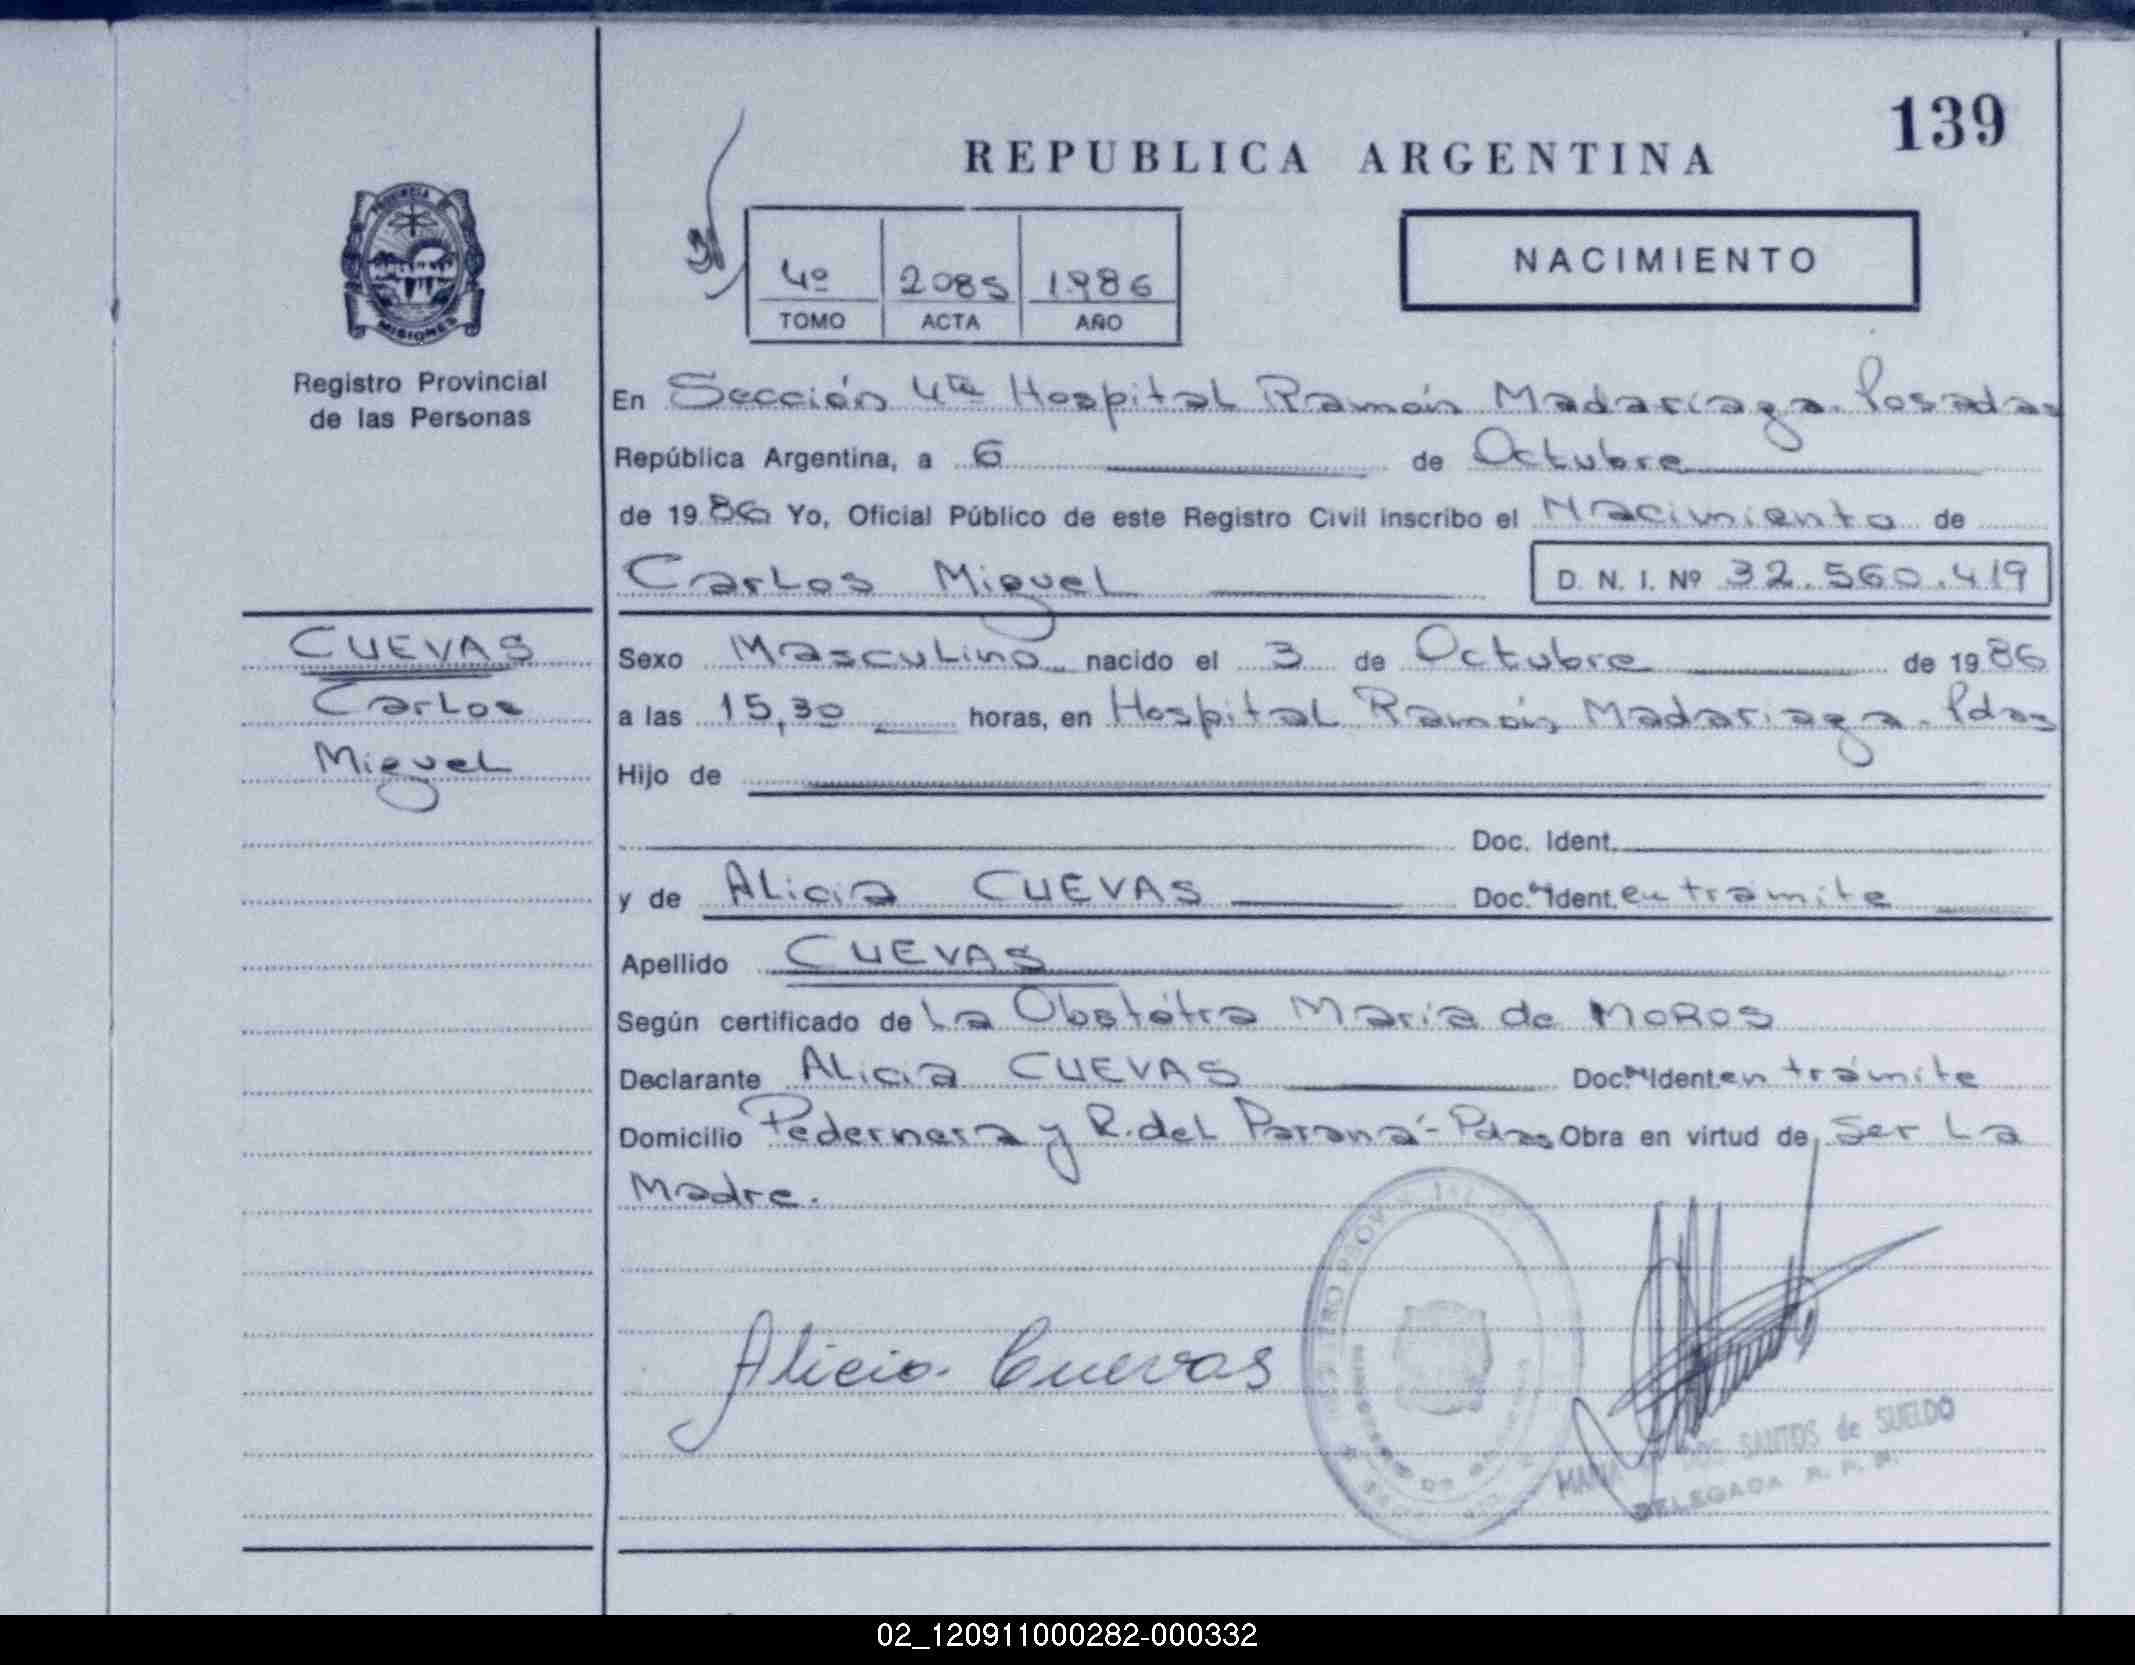 139
REPUBLICA ARGENTINA
PROVINCIA
MISIONES
4º 2085 1986
TOMO ACTA AÑO
NACIMIENTO
Registro Provincial
de las Personas
En Sección 4ta Hospital Ramón Madariaga. Posadas
República Argentina, a 6 de Octubre
de 1986 Yo, Oficial Público de este Registro Civil inscribo el Nacimiento de
Carlos Miguel D. N. I. Nº 32.560.419
CUEVAS
Carlos
Miguel
Sexo Masculino nacido el 3 de Octubre de 1986
a las 15,30 horas, en Hospital Ramón Madariaga. Pdas
Hijo de
Doc. Ident.
y de Alicia CUEVAS Doc. Ident. en trámite
Apellido CUEVAS
Según certificado de La Obstétra María de MOROS
Declarante Alicia CUEVAS Doc. Ident. en trámite
Domicilio Pedernera y R. del Paraná - Pdas Obra en virtud de ser La
Madre.
Alicia Cuevas
MARIA DOS SANTOS de SUELDO
DELEGADA
02_120911000282-000332